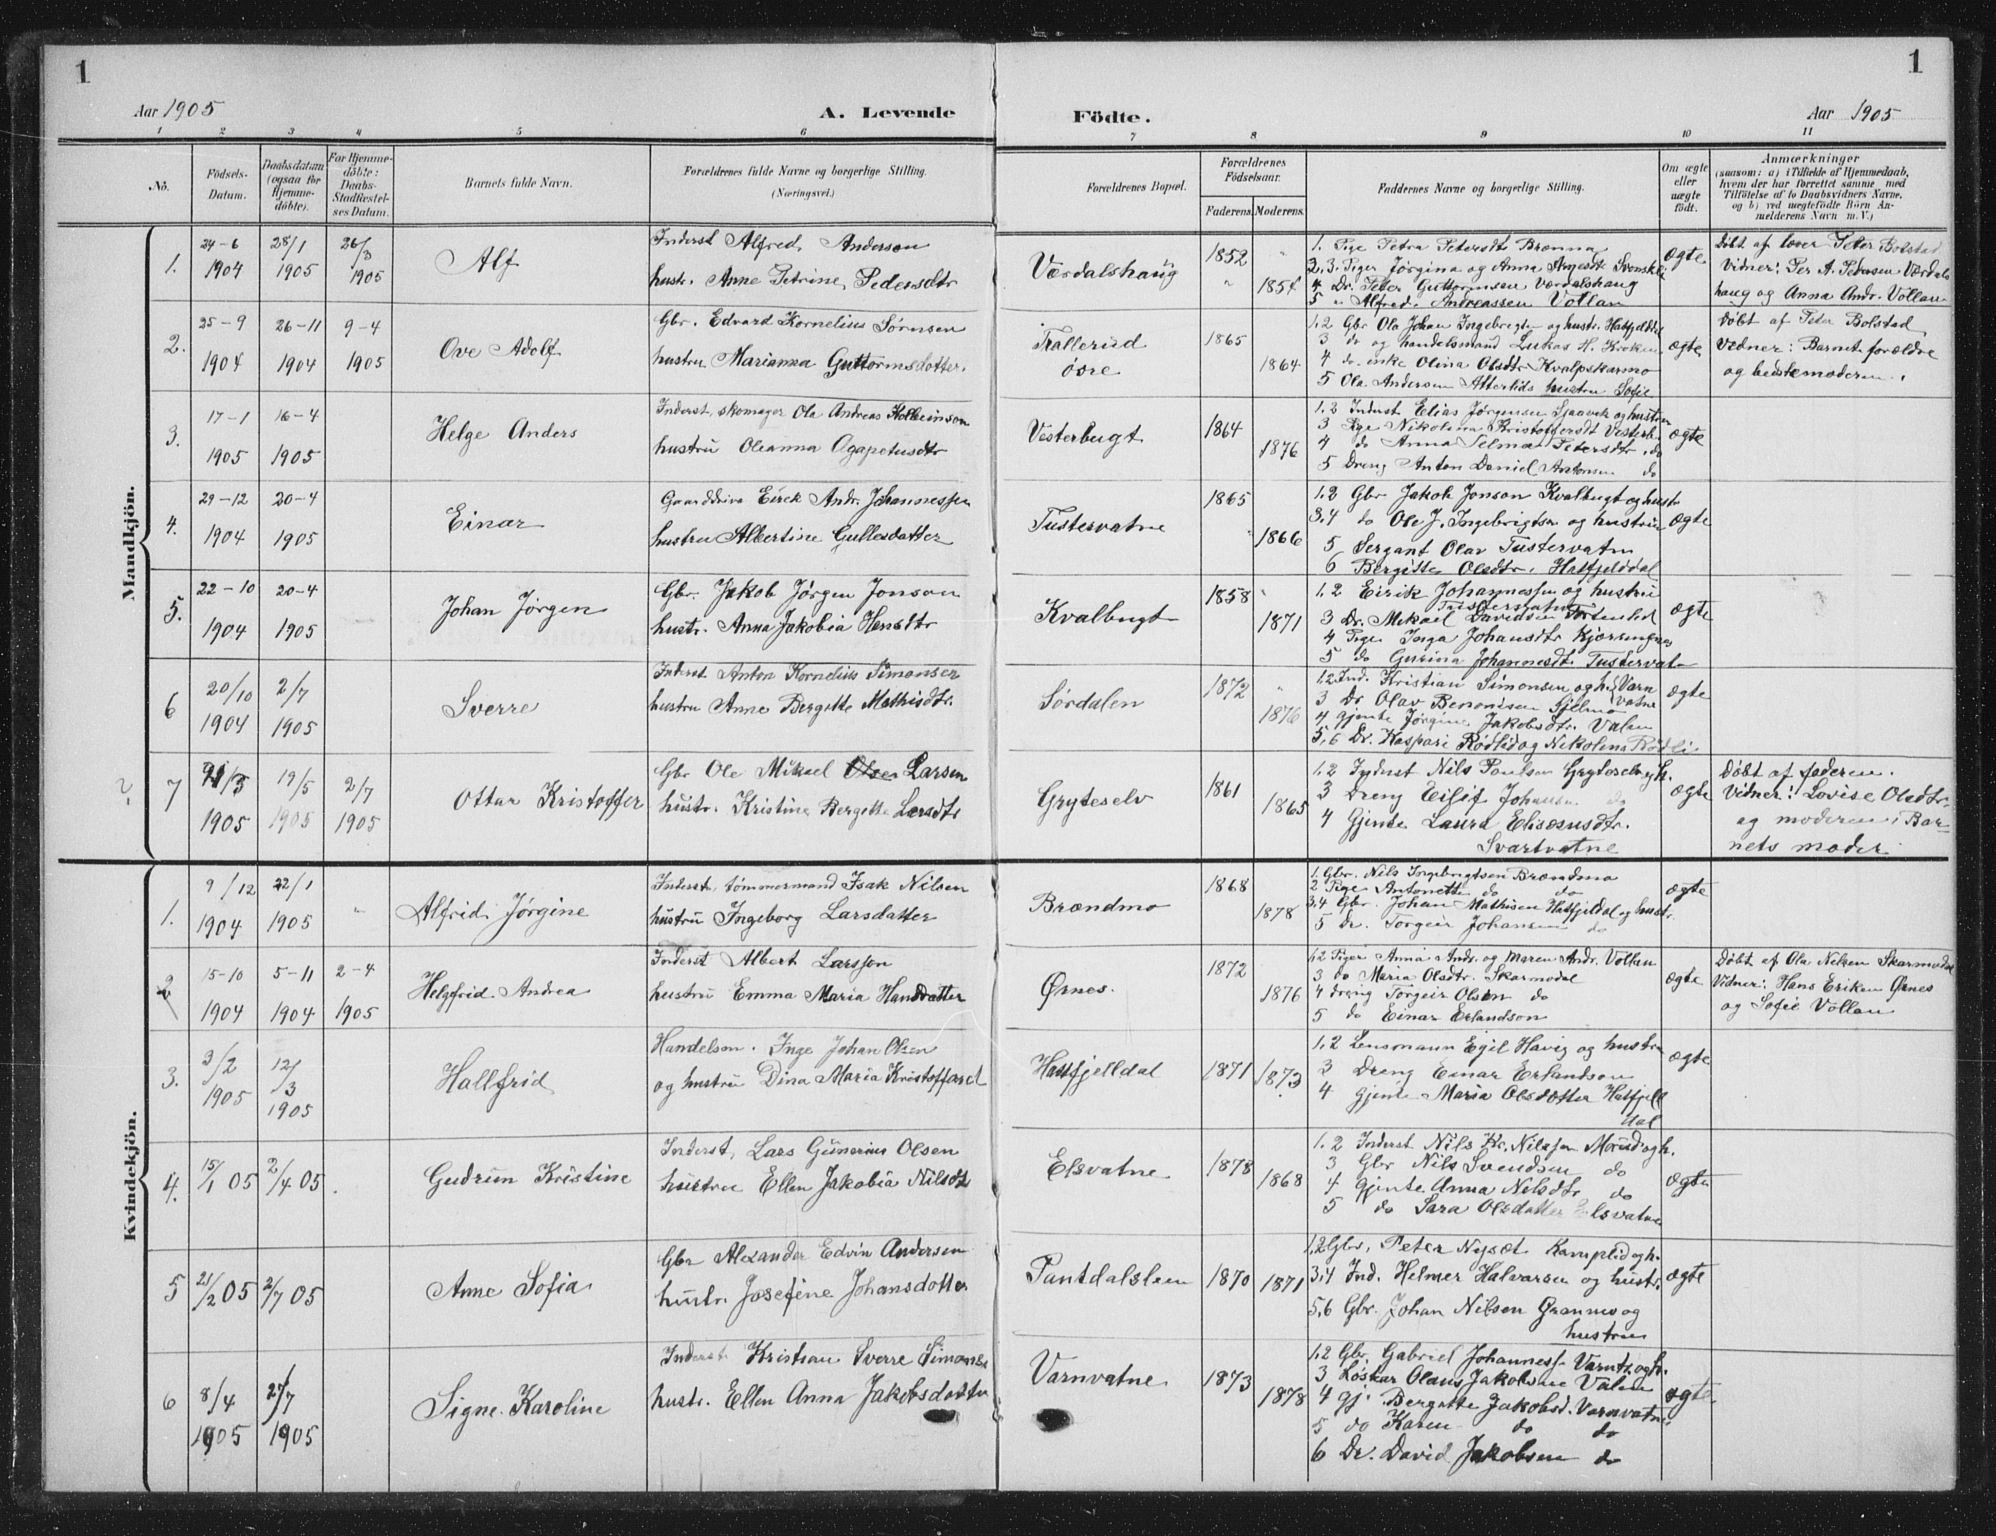 1
1
Aar 1905
A. Levende
Födte.
Aar 1905
1 2 3 4 5 6 7 8 9 10 11
No.
Födsels-
Datum.
Daabsdatum
(ogsaa for
Hjemme-
döbte).
For Hjemme-
döbte:
Daabs-
Stadfæstel-
ses Datum.
Barnets fulde Navn.
Forældrenes fulde Navne og borgerlige Stilling.
(Næringsvei.)
Forældrenes Bopæl.
Forældrenes
Födselsaar.
Faderens. Moderens.
Faddernes Navne og borgerlige Stilling.
Om ægte
eller
uægte
födt.
Anmærkninger
(saasom: a) i Tilfælde af Hjemmedaab,
hvem der har forrettet samme med
Tilföielse af to Daabsvidners Navne,
og b) ved uægtefödte Börn An-
melderens Navn m. V.)
Mandkjön.
1.
24-6
1904
28/1
1905
26/3
1905
Alf
Inderst Alfred Anderson
hustr. Anne Petrine Pedersdtr
Værdalshaug
1852
1854
1. Pige Petra Petersdt Brenna
2,3. Piger Jørgina og Anna
4 Dr. Peter Guttormsen Værdalshaug
5 " Alfred Andreassen Vollan
ægte
Døbt af lærer Peter Bolstad
Vidner: Per A. Pedersen Værdals
haug og Anna Andr. Vollan
2.
25-9
1904
26-11
1904
9-4
1905
Ove Adolf
Gbr. Edvard Kornelius Sörnsen
hustru Marianna Guttormsdatter.
Trallerud
øsre
1865
1864
1,2 Gbr Ola Johan Ingebrigtsn og hustr. Hatfjelddal
3 do og handelsmand Lukas H. Kroken
4 do enke Olina Olsdtr Kvalpskarmo
5 Ola Andersen Atterlids hustru Sofie
ægte
Døbt af Peter Bolstad
Vidner: Barnet forældre
og bedstemoderen.
3.
17-1
1905
16-4
1905
Helge Anders
Inderst, skomager Ola Andreas Kolbeinson
hustru Oleanna Agapetusdtr
Vesterbugt
1864
1876
1,2 Inderst Elias Jørgensen Sjaavik og hustru
3 Pige Nikolina Kristoffersdt Vesterb.
4 do Anna Selma Petersdtr do
5 Dreng Anton Daniel Antonsen do
ægte
4.
29-12
1904
20-4
1905
Einar
Gaarddriver Eirek Andr. Johannessen
hustru Albertine Gullesdatter
Tustervatne
1865
1866
1,2 Gbr Jakob Jonson Kvalbugt og hustr
3,4 do Ole J. Ingebrigtsn og hustru
5 Sergant Olav Tustervatn
6 Bergitte Olsdtr. Hatfjelddal
ægte
5.
22-10
1904
20-4
1905
Johan Jörgen
Gbr. Jakob Jörgen Jonson
hustr. Anna Jakobia Hansdtr
Kvalbugt
1858
1871
1,2 Eirik Johannessen og hustru
Tustervatn
3 Dr. Mikael Davidsen
4 Pige Inga Johansdtr
5 do Gurina Johannesdt. Tustervatn
ægte
6
20/10
1904
2/7
1905
Sverre
Inderst Anton Kornelius Simonsen
hustru Anne Bergitte Mathisdtr.
Sørdalen
1872
1876
1,2 Ind. Kristian Simonsen og h. Varn
vatne
3 Dr Olav Benonisen
4 gjente Jörgine Jakobsdtr. Valen
5,6 Dr. Kaspari Rödli og Nikolens Rödli
ægte
7
21/3
1905
19/5
1905
2/7
1905
Ottar Kristoffer
Gbr Ole Mikael Olsen Larsen
hustr. Kristine Bergitte Larsdtr
Gryteselv
1861
1865
1,2 Inderst Nils Paulsen Gryteselv og h.
3 Dreng Eilif Johansen do
4 Gjente Laura Eliseusdtr.
Svartvatne
ægte
Døbt af faderen.
Vidner: Lovise Olsdtr
og moderen i Bar-
nets moder
Kvindekjön.
1.
9/12
1904
22/1
1905
"
Alfrid Jörgine
Inderst, tömmermand Isak Nilsen
hustru Ingeborg Larsdatter
Brændmo
1868
1878
1. Gbr. Nils Ingebrigtsen Brændmo
2 Pige Antonette do do
3,4 Gbr. Johan Mathisen Hatfjeldal og hustr.
5 Dr. Torgeir Johansen do
ægte
2
15-10
1904
5-11
1904
2-4
1905
Helgfrid Andrea
Inderst Albert Larsson
hustru Emma Maria Hansdatter
Ørnes.
1872
1876
1,2 Piger Anna Andr. og Maren Andr. Vollan
3 do Maria Olsdtr. Skarmodal
4 dreng Torgeir Olsen do
5 do Einar Erlandson
ægte
Døbt af Ola Nilsen Skarmodal
Vidner: Hans Eriken Ørnes
og Sofie Vollan
3.
3/2
1905
12/3
1905
Hallfrid
Handelsm. Inge Johan Olsen
og hustru Dina Maria Kristoffersd
Hatfjelldal
1871
1873
1,2 Lensmann Egil Havig og hustru
3 Dreng Einar Erlandson
4 gjente Maria Olsdatter Hatfjell
dal
ægte
4.
15/1 05
2/4 05
Gudrun Kristine
Inderst, Lars Gunerius Olsen
hustru Ellen Jakobia Nilsdt
Elsvatne
1878
1868
1,2 Inderst Nils Kr. Nilssen Mörud og h.
3 Gbr Nils Svendsen do
4 gjente Anna Nilsdtr do
5 do Sara Olsdatter Elsvatne
ægte
5
21/2 05
2/7 05
Anne Sofia
Gbr Alexander Edvin Andersen
hustr. Josefine Johansdotter
Pantdalslien
1870
1871
1,2 Gbr. Peter Nysæt Kamplid og h.
3,4 Ind. Helmer Halvarsen og hustr.
5,6 Gbr. Johan Nilsen Grannes og
hustru
ægte
6
8/4
1905
2/7
1905
Signe Karoline
Inderst Kristian Sverre Simons
hustr. Ellen Anna Jakobsdatter
Varnvatne
1873
1878
1,2 Gbr. Gabriel Johanness. Varntr. og h.
3 Løskar Olaus Jakobsen Valen
4 gj. Bergitte Jakobsd. Varnvatne
5 do Karen do do
6 Dr. David Jakobsen do
ægte